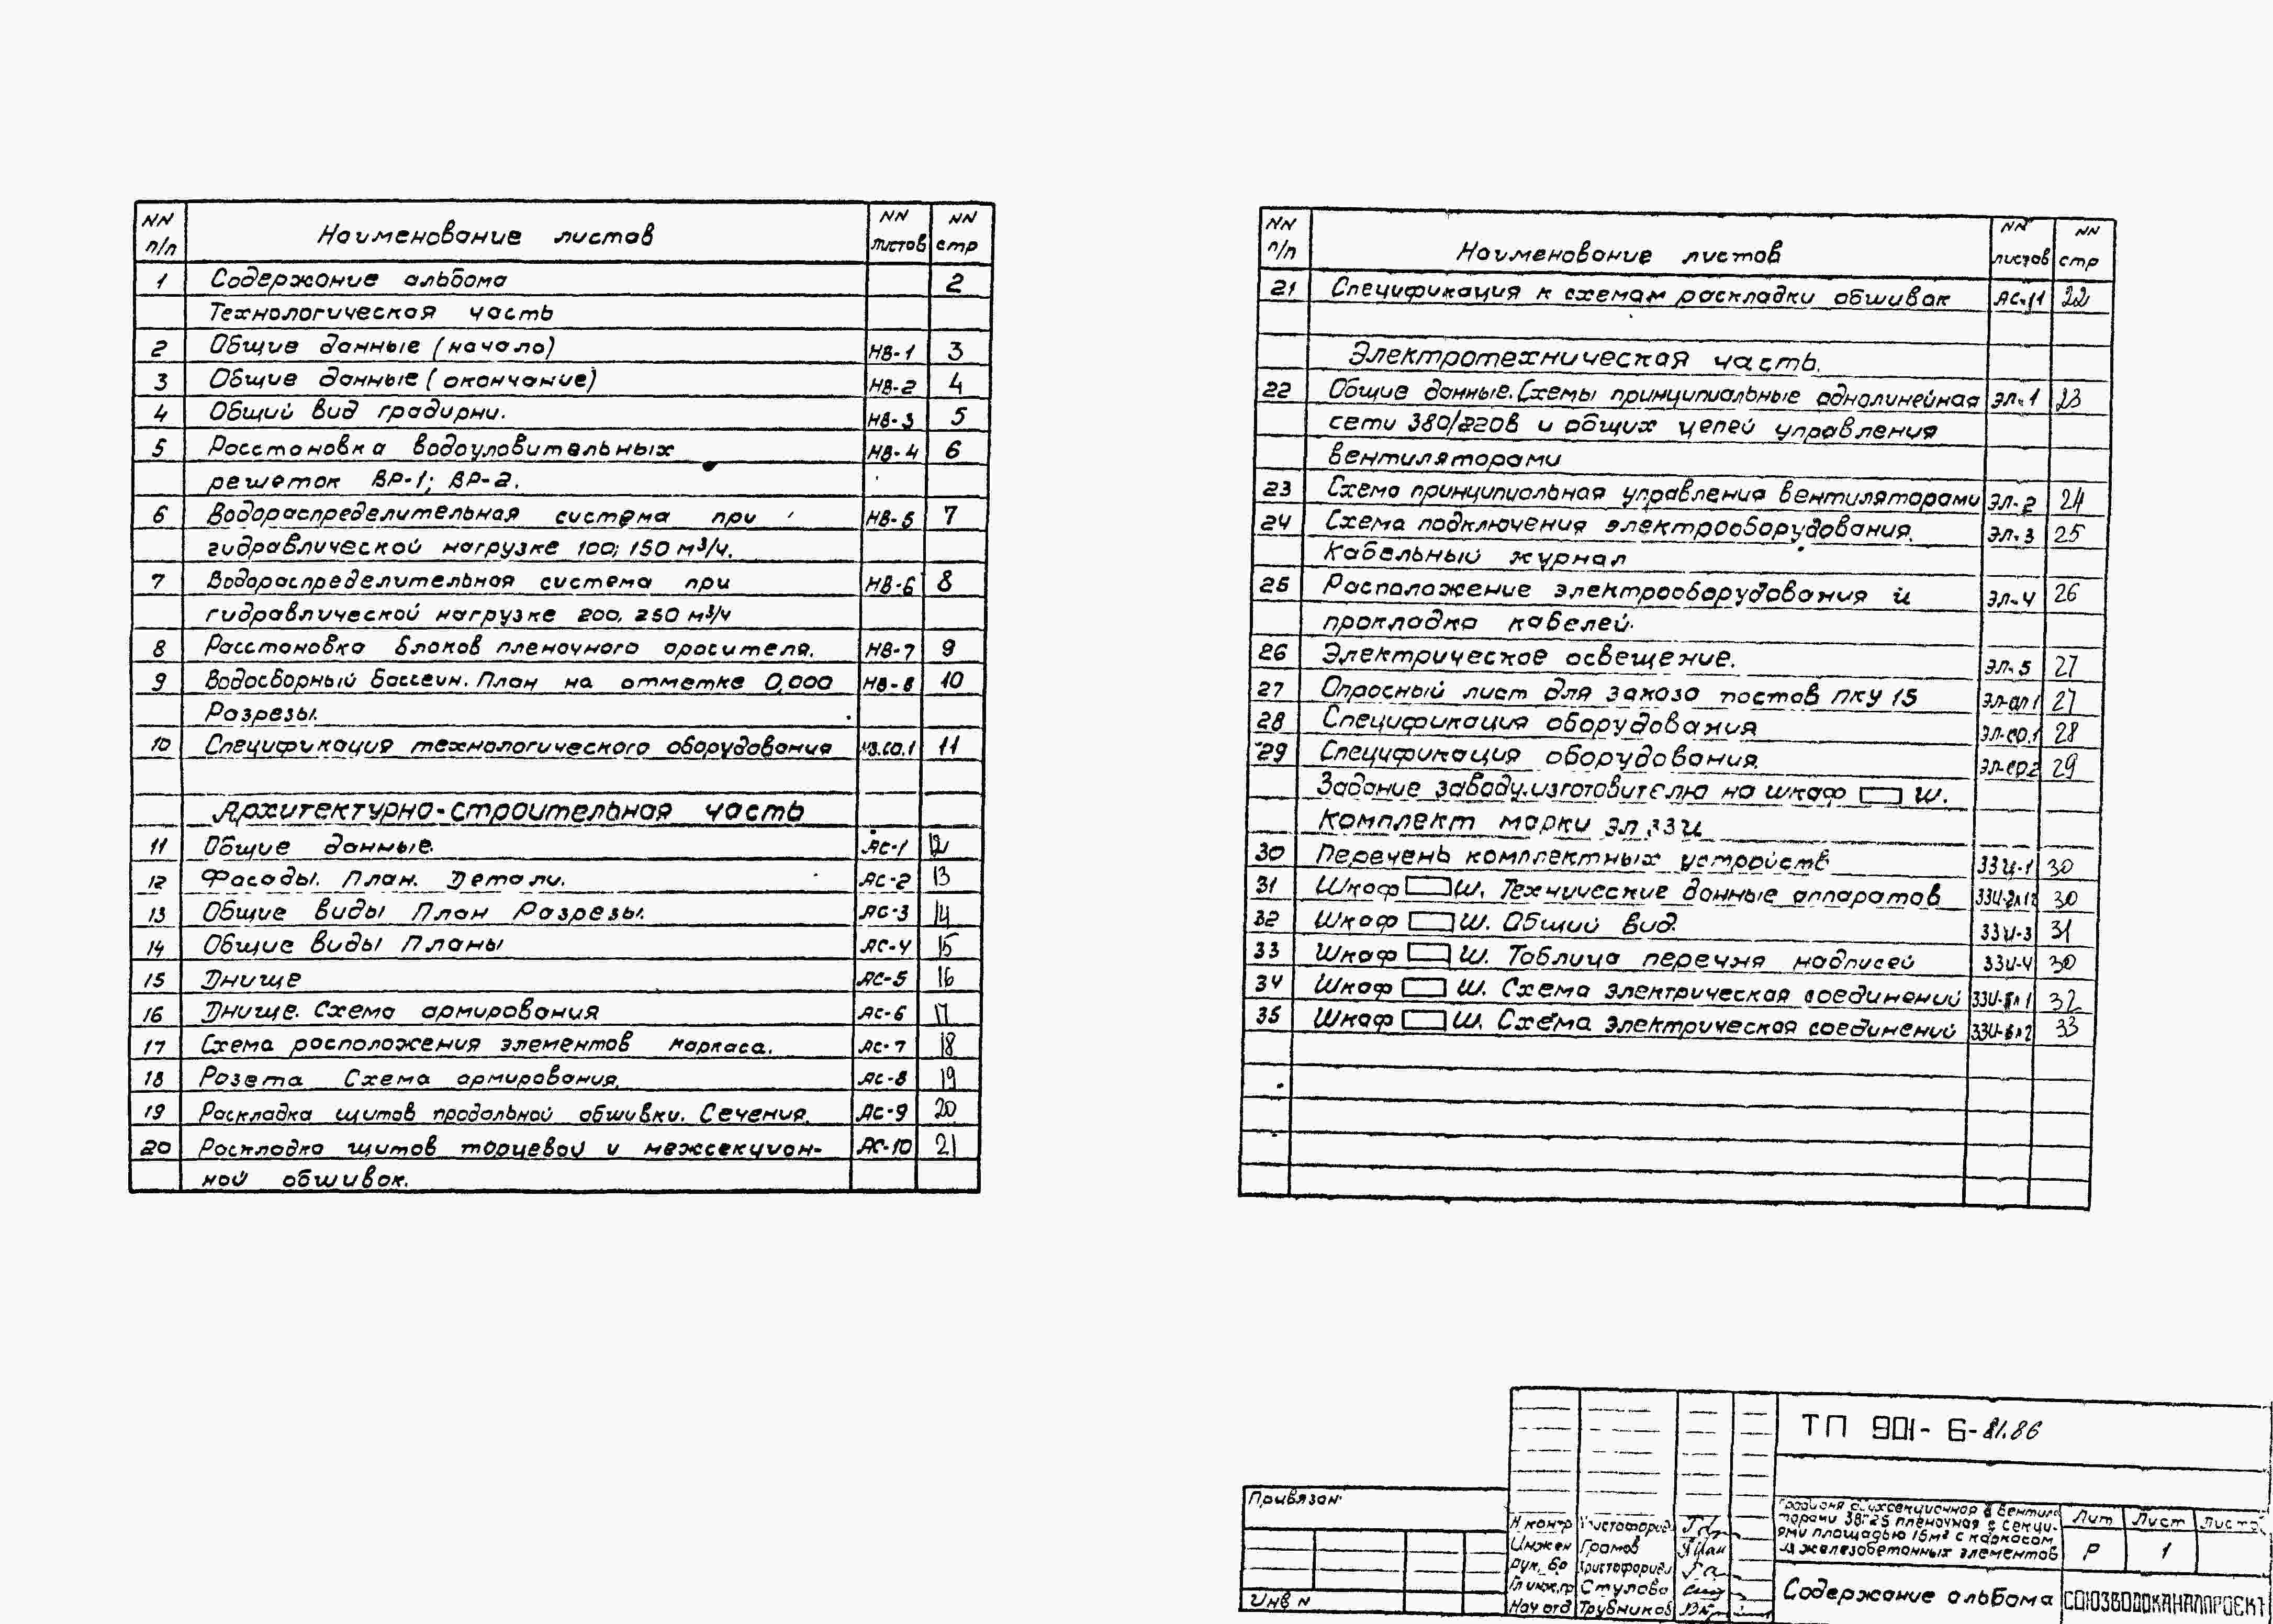 NN п/п Наименование листов NN листов NN стр
1 Содержание альбома 2
Технологическая часть
2 Общие данные (начало) НВ-1 3
3 Общие данные (окончание) НВ-2 4
4 Общий вид градирни. НВ-3 5
5 Расстановка водоуловительных НВ-4 6
решеток ВР-1; ВР-2.
6 Водораспределительная система при НВ-5 7
гидравлической нагрузке 100; 150 м³/ч.
7 Водораспределительная система при НВ-6 8
гидравлической нагрузке 200, 250 м³/ч
8 Расстановка блоков пленочного оросителя. НВ-7 9
9 Водосборный бассейн. План на отметке 0,000 НВ-8 10
Разрезы.
10 Спецификация технологического оборудования НВ.СО.1 11
Архитектурно-строительная часть
11 Общие данные. АС-1 12
12 Фасады. План. Детали. АС-2 13
13 Общие виды План Разрезы. АС-3 14
14 Общие виды Планы АС-4 15
15 Днище АС-5 16
16 Днище. Схема армирования АС-6 17
17 Схема расположения элементов каркаса. АС-7 18
18 Розета Схема армирования. АС-8 19
19 Раскладка щитов продольной обшивки. Сечения. АС-9 20
20 Раскладка щитов торцевой и межсекцион- АС-10 21
ной обшивок.
NN п/п Наименование листов NN листов NN стр
21 Спецификация к схемам раскладки обшивок АС-11 22
Электротехническая часть.
22 Общие данные. Схемы принципиальные однолинейная ЭЛ-1 23
сети 380/220В и общих цепей управления
вентиляторами
23 Схема принципиальная управления вентиляторами ЭЛ-2 24
24 Схема подключения электрооборудования. ЭЛ-3 25
Кабельный журнал
25 Расположение электрооборудования и ЭЛ-4 26
прокладка кабелей.
26 Электрическое освещение. ЭЛ-5 27
27 Опросный лист для заказа постов ПКУ 15 ЭЛ-ОЛ1 27
28 Спецификация оборудования ЭЛ-СО.1 28
29 Спецификация оборудования. ЭЛ-СО2 29
Задание заводу-изготовителю на шкаф Ш.
Комплект марки ЭЛ.ЗЗИ
30 Перечень комплектных устройств ЗЗИ-1 30
31 Шкаф Ш. Технические данные аппаратов ЗЗИ-2л12 30
32 Шкаф Ш. Общий вид. ЗЗИ-3 31
33 Шкаф Ш. Таблица перечня надписей ЗЗИ-4 30
34 Шкаф Ш. Схема электрическая соединений 32
35 Шкаф Ш. Схема электрическая соединений 33
ТП 901-6-81.86
Привязан:
Инв N
Н контр Христофорид
Инжен Громов
Рук. бр Христофорид
Гл инж.пр Стулова
Нач отд Трубников
Градирня двухсекционная с вентиля-
торами 3ВГ25 пленочная с секци-
ями площадью 16м² с каркасом
из железобетонных элементов
Лит Лист Листов
Р 1
Содержание альбома
СОЮЗВОДОКАНАЛПРОЕКТ